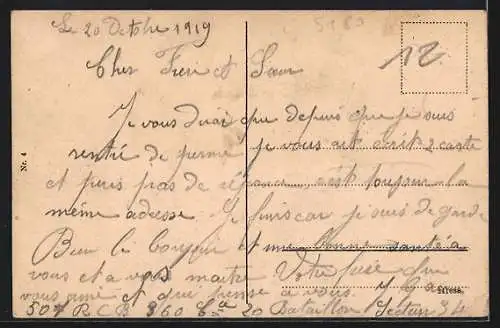 Le 20 Octobre 1919
5180
12
Cher Frere et Sœur
Je vous dirai que depuis que je suis
rentré de perme je vous ait écrit 2 carte
et puis pas de réponse, est toujour la
même adresse Je finis car je suis de garde
Bien le bonjour et une bonne santé a
vous et a vos Votre frère qui
vous aime et qui pense a vous.
Nr. 4
50 R C 360 Cie 20 Bataillon Secteur 34